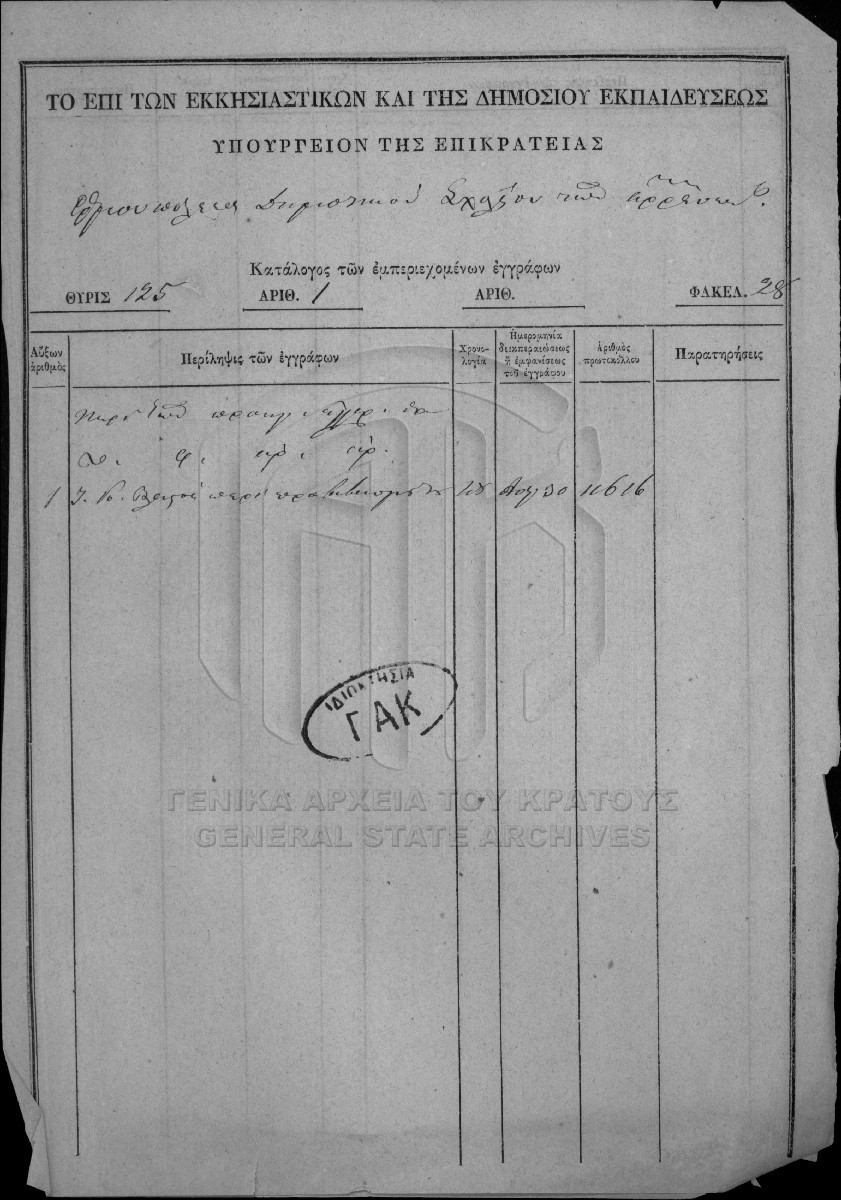 ΤΟ ΕΠΙ ΤΩΝ ΕΚΚΗΣΙΑΣΤΙΚΩΝ ΚΑΙ ΤΗΣ ΔΗΜΟΣΙΟΥ ΕΚΠΑΙΔΕΥΣΕΩΣ
ΥΠΟΥΡΓΕΙΟΝ ΤΗΣ ΕΠΙΚΡΑΤΕΙΑΣ
Ἑρμουπόλεως Δημοτικοῦ Σχολείου τῶν ἀρρένων.
Κατάλογος τῶν ἐμπεριεχομένων ἐγγράφων
ΘΥΡΙΣ 125 ΑΡΙΘ. 1 ΑΡΙΘ. ΦΑΚΕΛ. 28
Αὔξων ἀριθμὸς
Περίληψις τῶν ἐγγράφων
Χρονολογία
Ἡμερομηνία διεκπεραιώσεως ἢ ἐμφανίσεως τοῦ ἐγγράφου
ἀριθμὸς πρωτοκόλλου
Παρατηρήσεις
1 περὶ 30 11616
ΙΔΙΟΚΤΗΣΙΑ
ΓΑΚ
ΓΕΝΙΚΑ ΑΡΧΕΙΑ ΤΟΥ ΚΡΑΤΟΥΣ
GENERAL STATE ARCHIVES